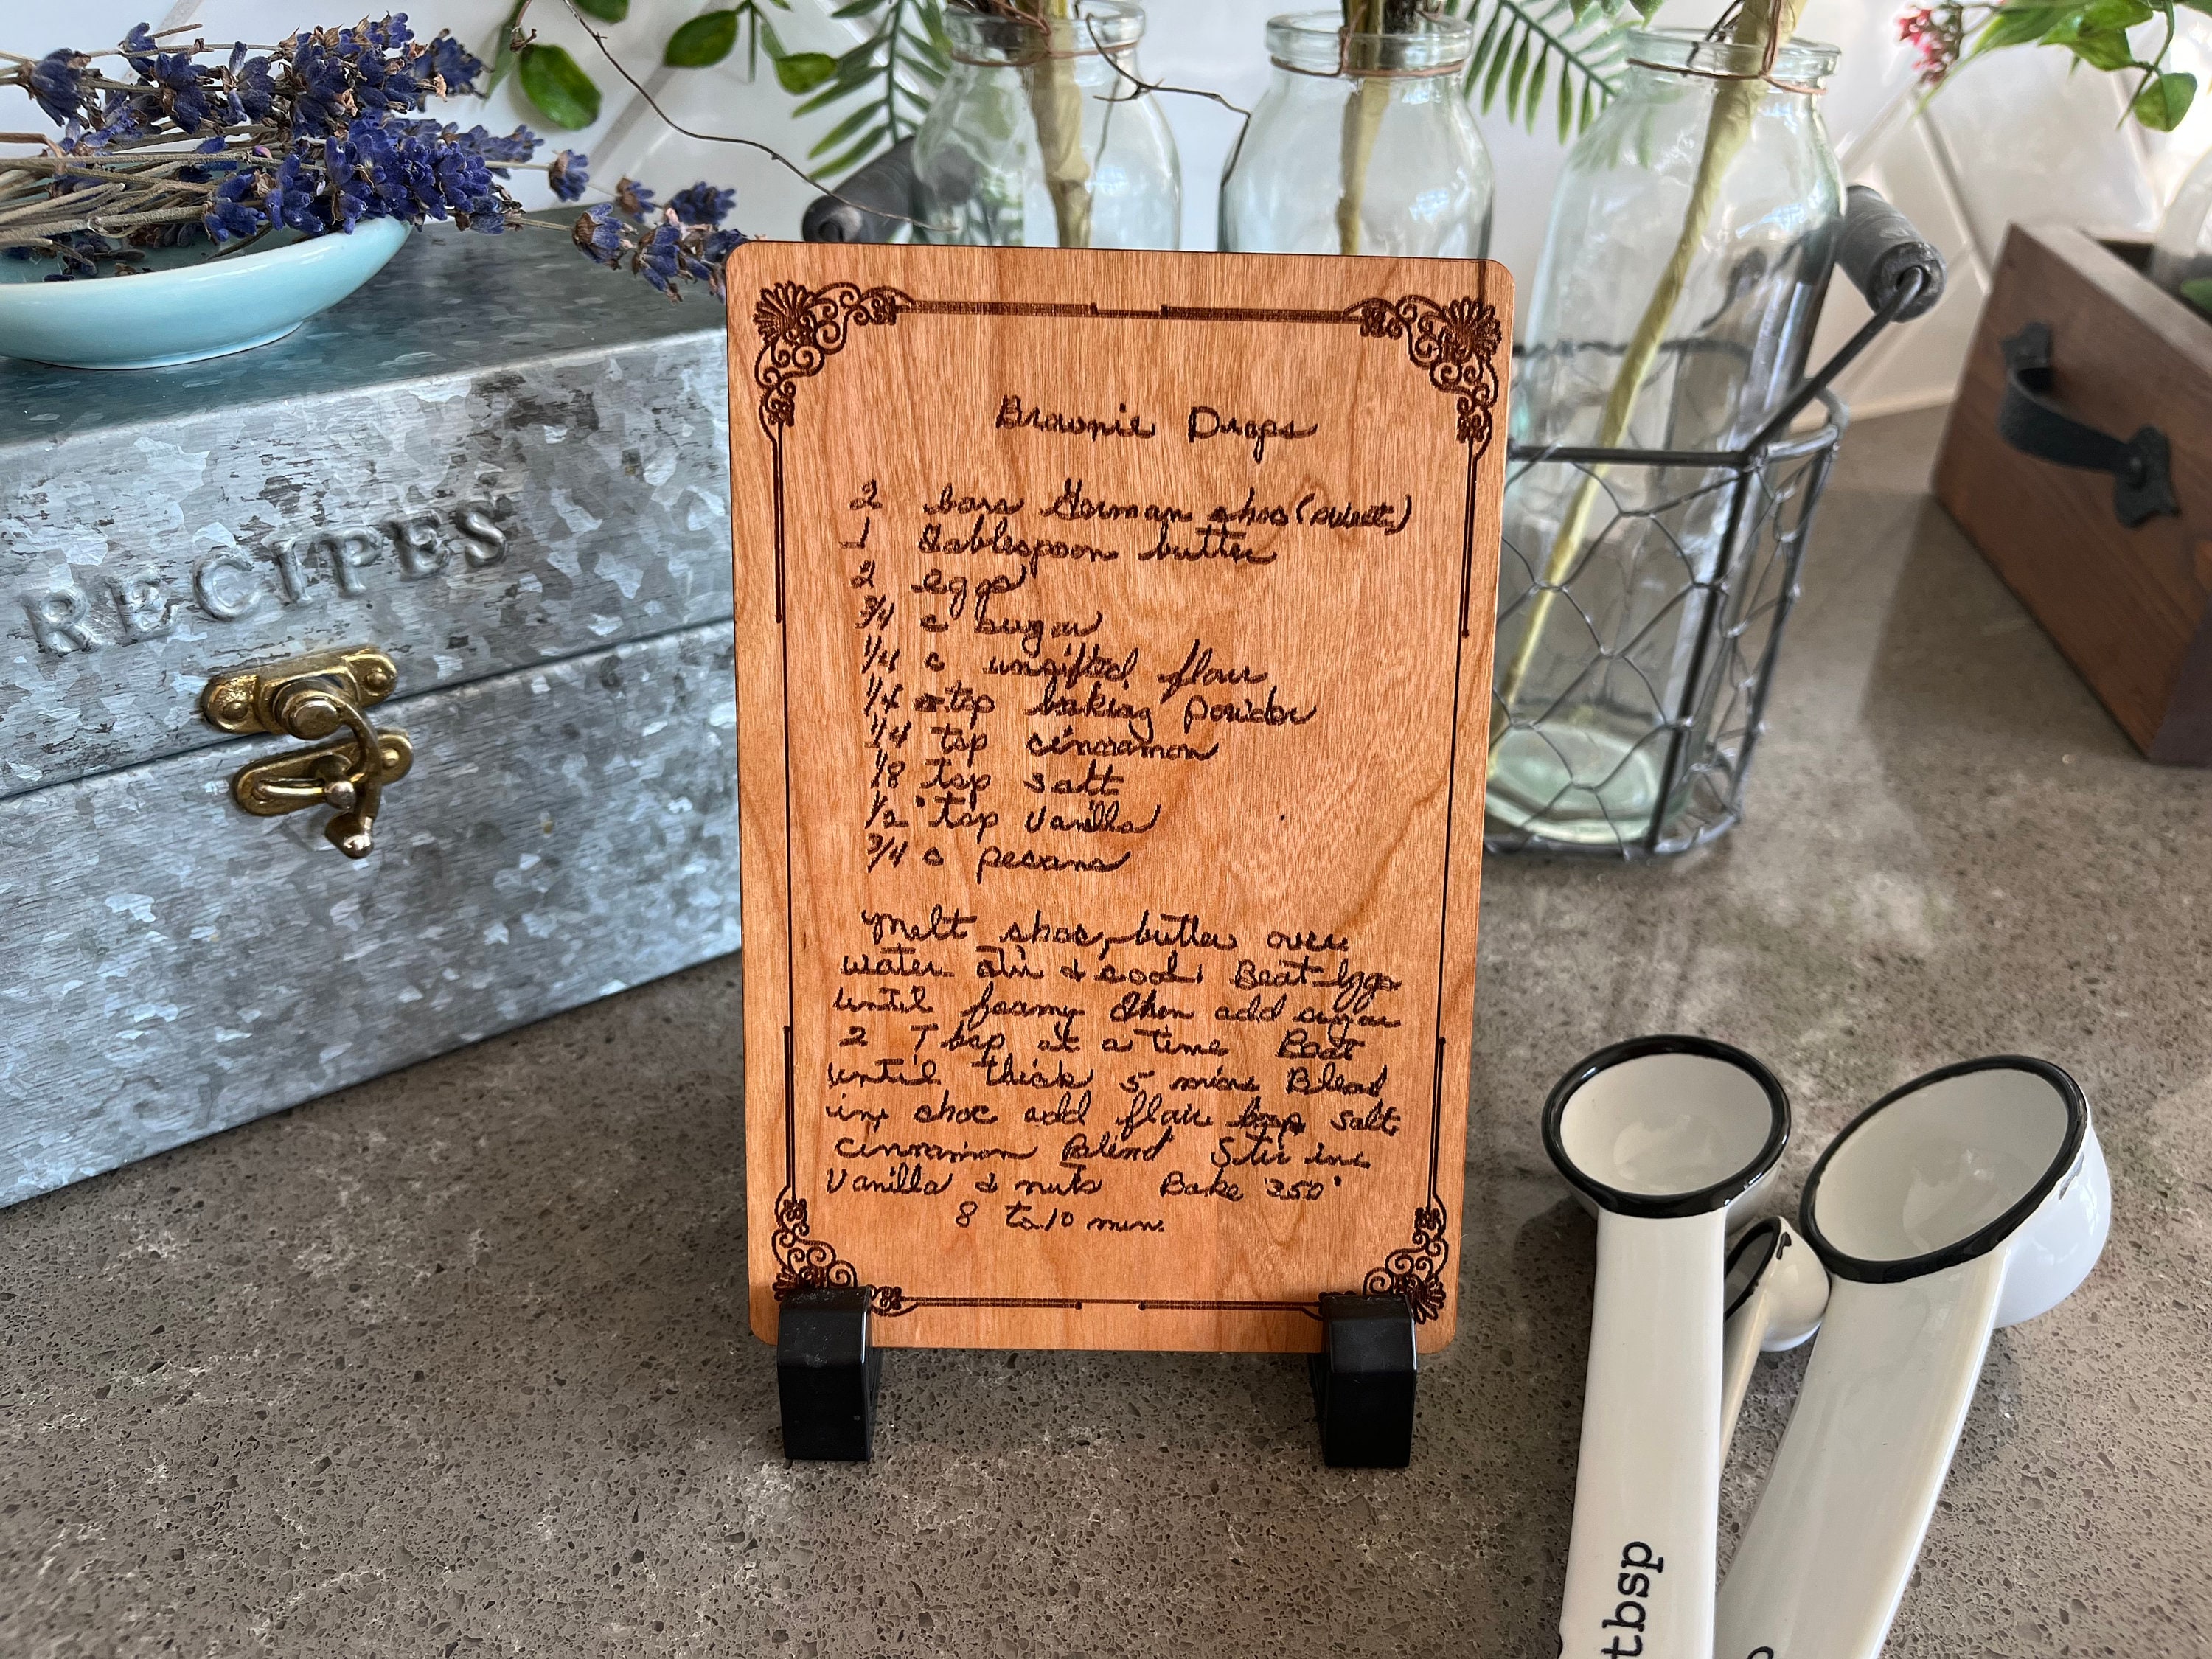 RECIPES
Brownie Drops
2 bars German choc (sweet)
1 Tablespoon butter
2 eggs
3/4 c sugar
1/4 c unsifted flour
1/4 tsp baking powder
1/4 tsp cinnamon
1/8 tsp salt
1/2 tsp Vanilla
3/4 c pecans
Melt choc, butter over
water. Stir & cool. Beat eggs
until foamy then add sugar
2 Tbsp at a time Beat
until thick 5 mins Blend
in choc add flour salt
cinnamon Blend Stir in
Vanilla & nuts Bake 350°
8 to 10 min.
tbsp